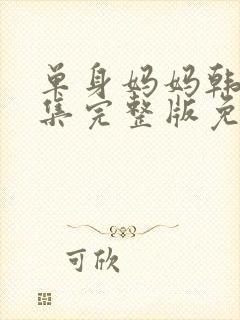 单身妈妈韩
集完整版免
可欣